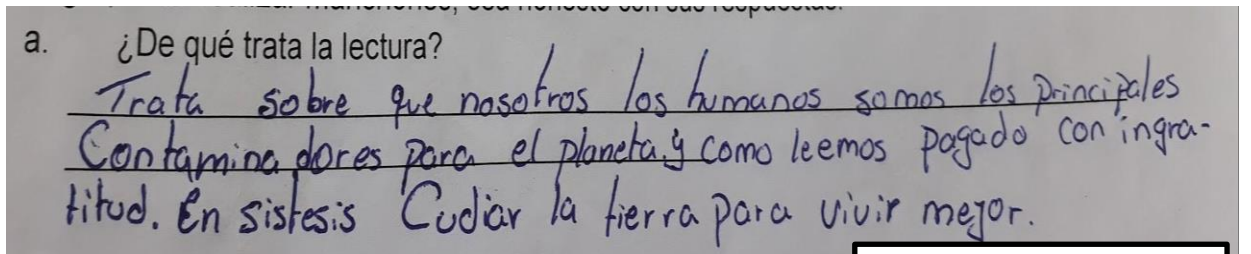 a. ¿De qué trata la lectura?
Trata sobre que nosotros los humanos somos los principales
Contaminadores para el planeta, y como leemos pagado con ingra-
titud. En sistesis Cudiar la tierra para vivir mejor.